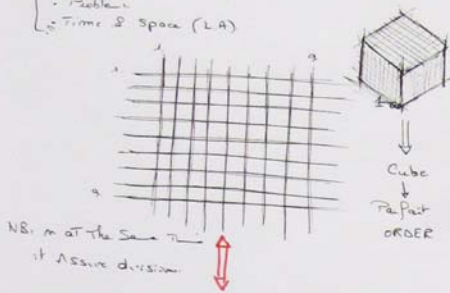 - Time & Space (LA)
1
9
1
9
1
Cube
Parfait
ORDER
NB. m at The Same
it Assure division